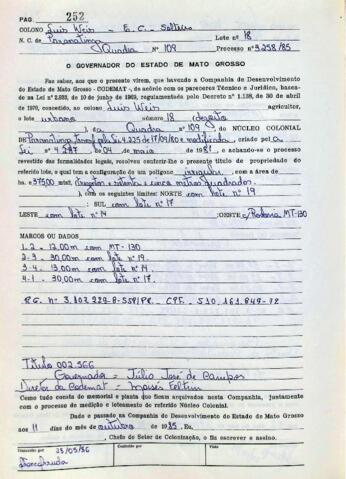 PAG. 252
COLONO Luis Weis - E. C. - Solteiro Lote nº 18
N. C. de Paranatinga
Quadra Nº 109 Processo nº 3258/85
O GOVERNADOR DO ESTADO DE MATO GROSSO
Faz saber, aos que o presente virem, que havendo a Companhia de Desenvolvimento
do Estado de Mato Grosso - CODEMAT -, de acôrdo com os pareceres Técnico e Jurídico, basea-
do na Lei nº 2.033, de 10 de junho de 1963, regulamentada pelo Decreto nº 1.138, de 30 de abril
de 1970, concedido, ao colono Luis Weis agricultor,
o lote urbano número 18 (dezoito
) da Quadra nº 109, do NÚCLEO COLONIAL
DE Paranatinga, Lei 4.225 de 17/09/80 e modificada, criado pela
Lei nº 4.247 de 04 de maio de 1981, e achando-se o processo
revestido das formalidades legais, resolveu conferir-lhe o presente título de propriedade do
referido lote, o qual tem a configuração de um polígono irregular, com a área de
ha 37500 mts2,
e com os seguintes limites: NORTE com lote nº 19
; SUL com lote nº 17
LESTE com lote nº 14 ; OESTE c/ Rodovia MT-130
MARCOS OU DADOS
1. 2 - 12,00m com MT-130
2-3 - 30,00m com lote nº 19.
3-4 - 13,00m com lote nº 14.
4-1 - 30,00m com lote nº 17.
RG. nº 3.102.229-8-SSP/PR - CPF. 510.161.849-72
Título 002.566
Governador = Júlio José de Campos
Diretor da Codemat = Moisés Feltrin
Como tudo consta do memorial e planta que ficam arquivados nesta Companhia, juntamente
com o processo de medição e loteamento do referido Núcleo Colonial.
Dado e passado na Companhia de Desenvolvimento do Estado de Mato Grosso
aos 11 dias do mês de outubro de 1985. Eu,
, Chefe do Setor de Colonização, o fiz escrever e assino.
Transcrito por 23/05/86 Conferido por Visto